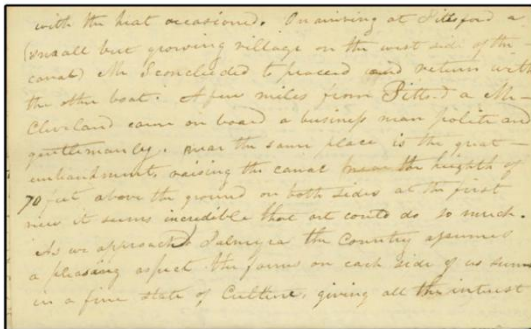 with the heat occasioned. On arriving at Pittsford a
(small but growing village on the west side of the
canal) Mr S concluded to proceed and return with
the other boat. A few miles from Pittsd a Mr
Cleveland came on board a business man polite and
gentlemanly. near the same place is the great
embankments raising the canal near the heighth of
70 feet above the ground on both sides at the first
view it seems incredible that art could do so much.
As we approached Palmyra the Country assumes
a pleasing aspect the farms on each side of us seem
in a fine state of Culture, giving all the interest